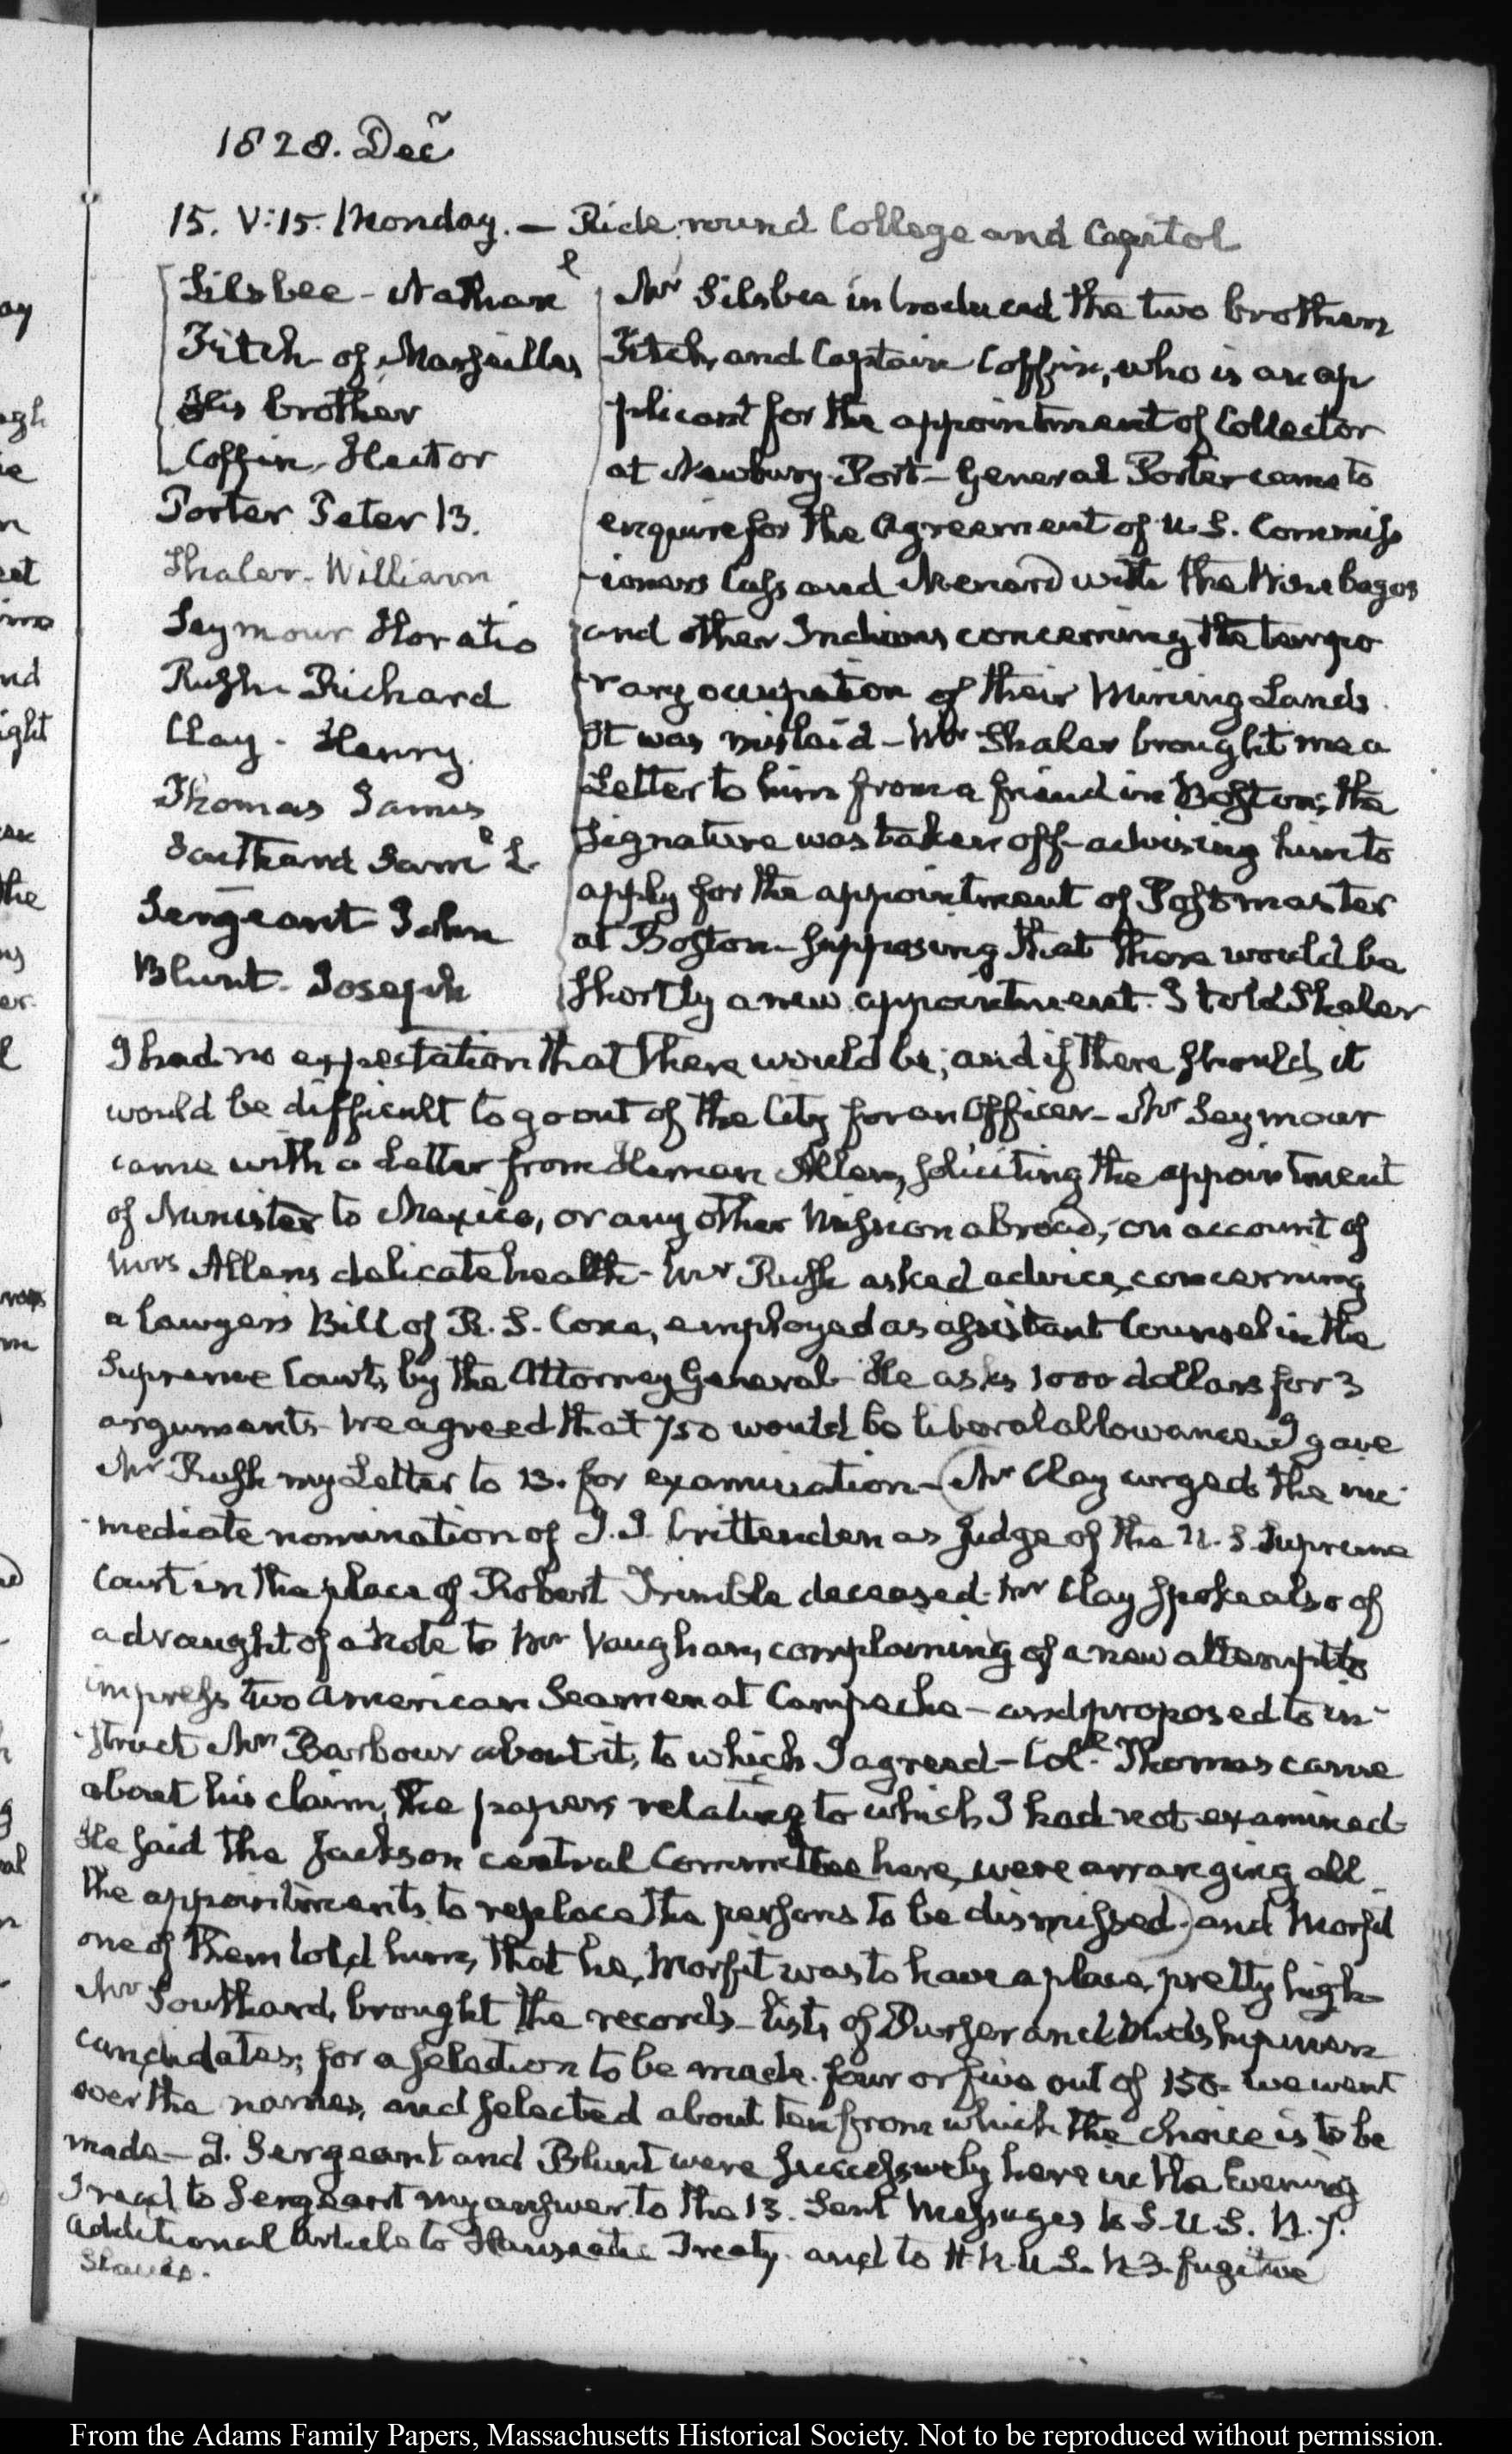 1828. Decr
15. V:15. Monday. — Ride round College and Capitol
Silsbee - Nathanl
Fitch of Marseilles
His brother
Coffin - Hector
Porter Peter B.
Shaler - William
Seymour Horatio
Rush - Richard
Clay - Henry.
Thomas James
Southard Saml L.
Sergeant John
Blunt - Joseph
Mr Silsbee introduced the two brothers
Fitch, and Captain Coffin, who is an ap
plicant for the appointment of Collector
at Newbury-Port - General Porter came to
enquire for the Agreement of U.S. Commiss
-ioners Cass and Menard with the Winebagos
and other Indians concerning the tempo
rary occupation of their Mining Lands.
It was mislaid - Mr Shaler brought me a
Letter to him from a friend in Boston; the
signature was taken off - advising him to
apply for the appointment of Postmaster
at Boston - supposing that there would be
shortly a new appointment. I told Shaler
I had no expectation that there would be; and if there should, it
would be difficult to go out of the City for an Officer - Mr Seymour
came with a Letter from Heman Allen, soliciting the appointment
of Minister to Mexico, or any other Mission abroad, on account of
Mrs Allens delicate health - Mr Rush asked advice, concerning
a lawyer's Bill of R. S. Coxe, employed as assistant Counsel in the
Supreme Court, by the Attorney General - He asks 1000 dollars for 3
arguments - We agreed that 750 would be liberal allowance. I gave
Mr Rush my Letter to 13. for examination - Mr Clay urged the im-
-mediate nomination of J. J. Crittenden as Judge of the U.S. Supreme
Court in the place of Robert Trimble deceased - Mr Clay spoke also of
a draught of a Note to Mr Vaughan, complaining of a new attempt to
impress two American Seamen at Campeche - and proposed to in-
-struct Mr Barbour about it, to which I agreed - Coll Thomas came
about his claim, the papers relating to which I had not examined -
He said the Jackson central Committee here, were arranging all
the appointments to replace the persons to be dismissed, and Morfit
one of them told him, that he, Morfit was to have a place, pretty high -
Mr Southard, brought the records - lists of Purser and Midshipmen
candidates; for a selection to be made - four or five out of 150 - we went
over the names, and selected about ten from which the choice is to be
made - J. Sergeant and Blunt were successively here in the Evening
I read to Sergeant my answer to the 13. Sent Messages to S.U.S. N. 7.
Additional Article to Hanseatic Treaty. and to H.R.U.S. N 3. fugitive
Slaves.
From the Adams Family Papers, Massachusetts Historical Society. Not to be reproduced without permission.